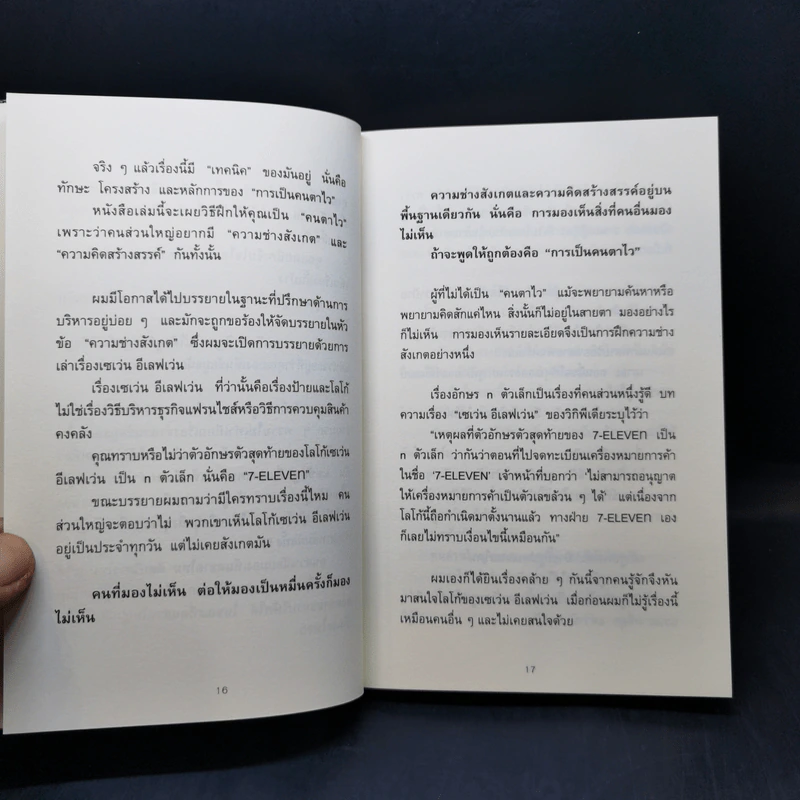 จริง ๆ แล้วเรื่องนี้มี "เทคนิค" ของมันอยู่ นั่นคือ
ทักษะ โครงสร้าง และหลักการของ "การเป็นคนตาไว"
หนังสือเล่มนี้จะเผยวิธีฝึกให้คุณเป็น "คนตาไว"
เพราะว่าคนส่วนใหญ่อยากมี "ความช่างสังเกต" และ
"ความคิดสร้างสรรค์" กันทั้งนั้น
ผมมีโอกาสได้ไปบรรยายในฐานะที่ปรึกษาด้านการ
บริหารอยู่บ่อย ๆ และมักจะถูกขอร้องให้จัดบรรยายในหัว
ข้อ "ความช่างสังเกต" ซึ่งผมจะเปิดการบรรยายด้วยการ
เล่าเรื่องเซเว่น อีเลฟเว่น
เรื่องเซเว่น อีเลฟเว่น ที่ว่านั้นคือเรื่องป้ายและโลโก้
ไม่ใช่เรื่องวิธีบริหารธุรกิจแฟรนไชส์หรือวิธีการควบคุมสินค้า
คงคลัง
คุณทราบหรือไม่ว่าตัวอักษรตัวสุดท้ายของโลโก้เซเว่น
อีเลฟเว่น เป็น n ตัวเล็ก นั่นคือ "7-ELEVEn"
ขณะบรรยายผมถามว่ามีใครทราบเรื่องนี้ไหม คน
ส่วนใหญ่จะตอบว่าไม่ พวกเขาเห็นโลโก้เซเว่น อีเลฟเว่น
อยู่เป็นประจำทุกวัน แต่ไม่เคยสังเกตมัน
คนที่มองไม่เห็น ต่อให้มองเป็นหมื่นครั้งก็มอง
ไม่เห็น
16
ความช่างสังเกตและความคิดสร้างสรรค์อยู่บน
พื้นฐานเดียวกัน นั่นคือ การมองเห็นสิ่งที่คนอื่นมอง
ไม่เห็น
ถ้าจะพูดให้ถูกต้องคือ "การเป็นคนตาไว"
ผู้ที่ไม่ได้เป็น "คนตาไว" แม้จะพยายามค้นหาหรือ
พยายามคิดสักแค่ไหน สิ่งนั้นก็ไม่อยู่ในสายตา มองอย่างไร
ก็ไม่เห็น การมองเห็นรายละเอียดจึงเป็นการฝึกความช่าง
สังเกตอย่างหนึ่ง
เรื่องอักษร n ตัวเล็กเป็นเรื่องที่คนส่วนหนึ่งรู้ดี บท
ความเรื่อง "เซเว่น อีเลฟเว่น" ของวิกิพีเดียระบุไว้ว่า
"เหตุผลที่ตัวอักษรตัวสุดท้ายของ 7-ELEVEn เป็น
n ตัวเล็ก ว่ากันว่าตอนที่ไปจดทะเบียนเครื่องหมายการค้า
ในชื่อ '7-ELEVEN' เจ้าหน้าที่บอกว่า 'ไม่สามารถอนุญาต
ให้เครื่องหมายการค้าเป็นตัวเลขล้วน ๆ ได้' แต่เนื่องจาก
โลโก้นี้ถือกำเนิดมาตั้งนานแล้ว ทางฝ่าย 7-ELEVEn เอง
ก็เลยไม่ทราบเงื่อนไขนี้เหมือนกัน"
ผมเองก็ได้ยินเรื่องคล้าย ๆ กันนี้จากคนรู้จักจึงหัน
มาสนใจโลโก้ของเซเว่น อีเลฟเว่น เมื่อก่อนผมก็ไม่รู้เรื่องนี้
เหมือนคนอื่น ๆ และไม่เคยสนใจด้วย
17